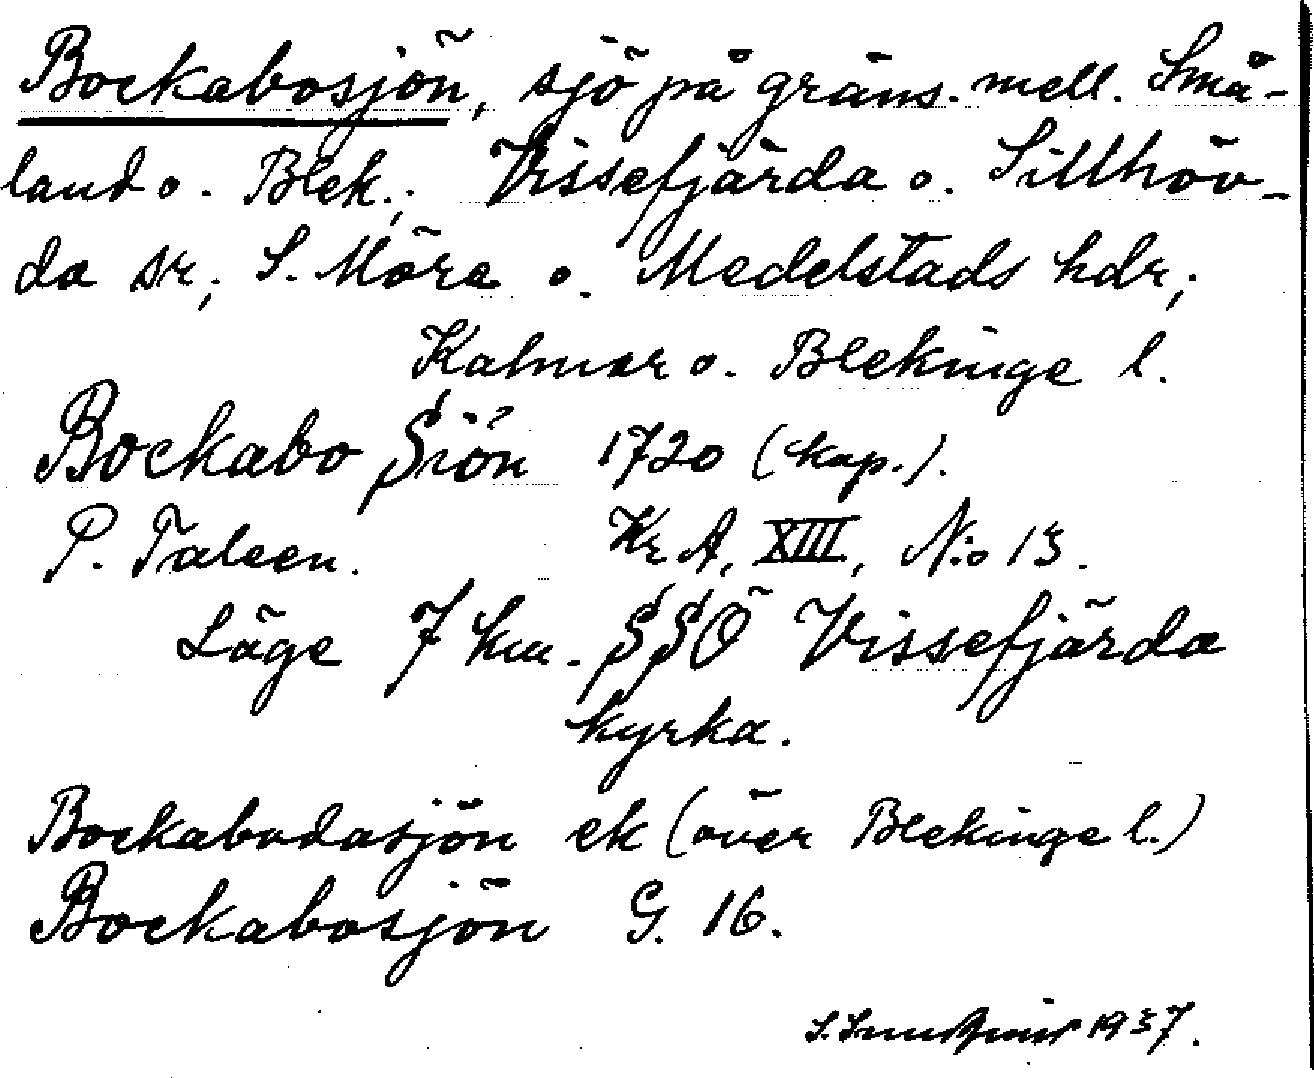 Bockabosjön, sjö på gräns. mell. Små-
land o. Blek.; Vissefjärda o. Sillhöv-
da sr; S. Möre o. Medelstads hdr;
Kalmar o. Blekinge l.
Bockabo Siön 1720 (kop.).
P. Taleen. Kr A, XIII, N:o 13.
Läge 7 km. SSÖ Vissefjärda
kyrka.
Bockabodasjön ek (över Blekinge l.)
Bockabosjön G. 16.
1937.